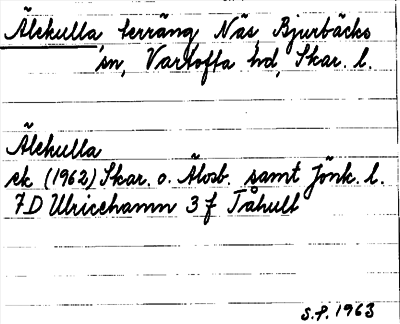 Älekulla, terräng Näs, Bjurbäcks
sn, Vartofta hd, Skar. l.
Älekulla
ek (1962) Skar. o. Älvsb. samt Jönk. l.
7D Ulricehamn 3 f Tåhult
S.P. 1963